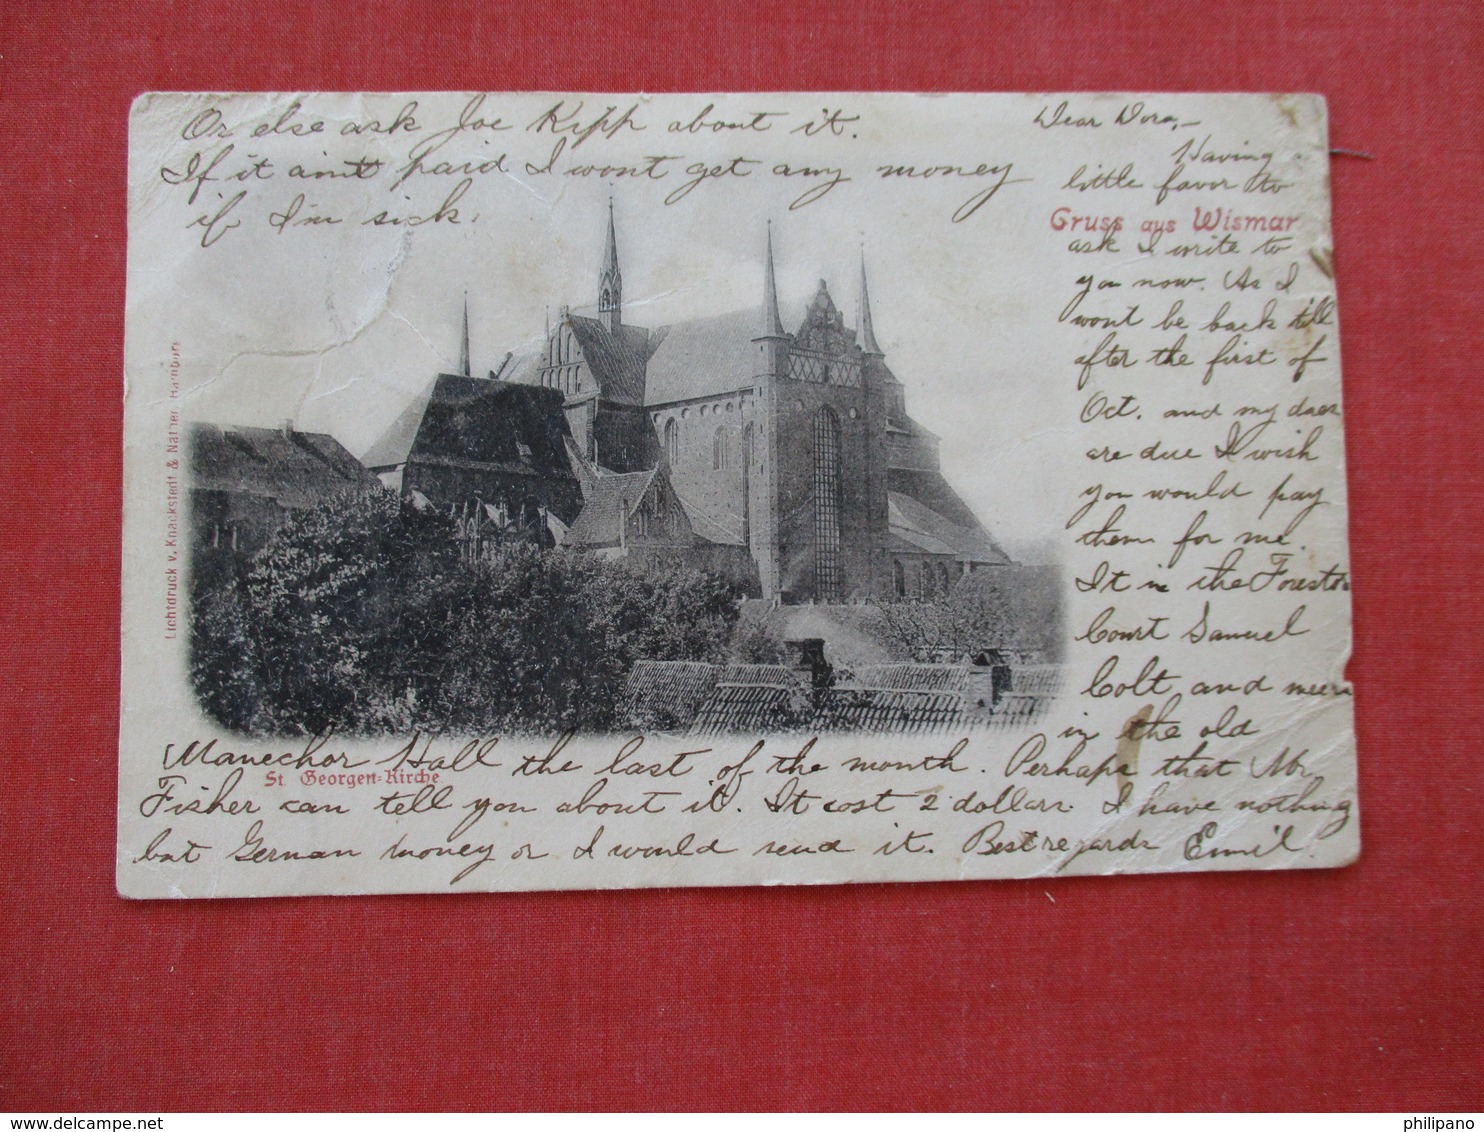 Or else ask Joe Kipp about it.
If it aint paid I wont get any money
if I'm sick.
Dear Dora,—
Having
little favor to
Gruss aus Wismar
ask I write to
you now. As I
wont be back till
after the first of
Oct. and my dues
are due I wish
you would pay
them for me.
It is in the Foresters
Court Samuel
Colt and meets
in the old
Manechor Hall the last of the month. Perhaps that Mr.
St. Georgen-Kirche
Fisher can tell you about it. It cost 2 dollars. I have nothing
but German money or I would send it. Best regards Emil.
Lichtdruck v. Knackstedt & Näther, Hamburg
philipano